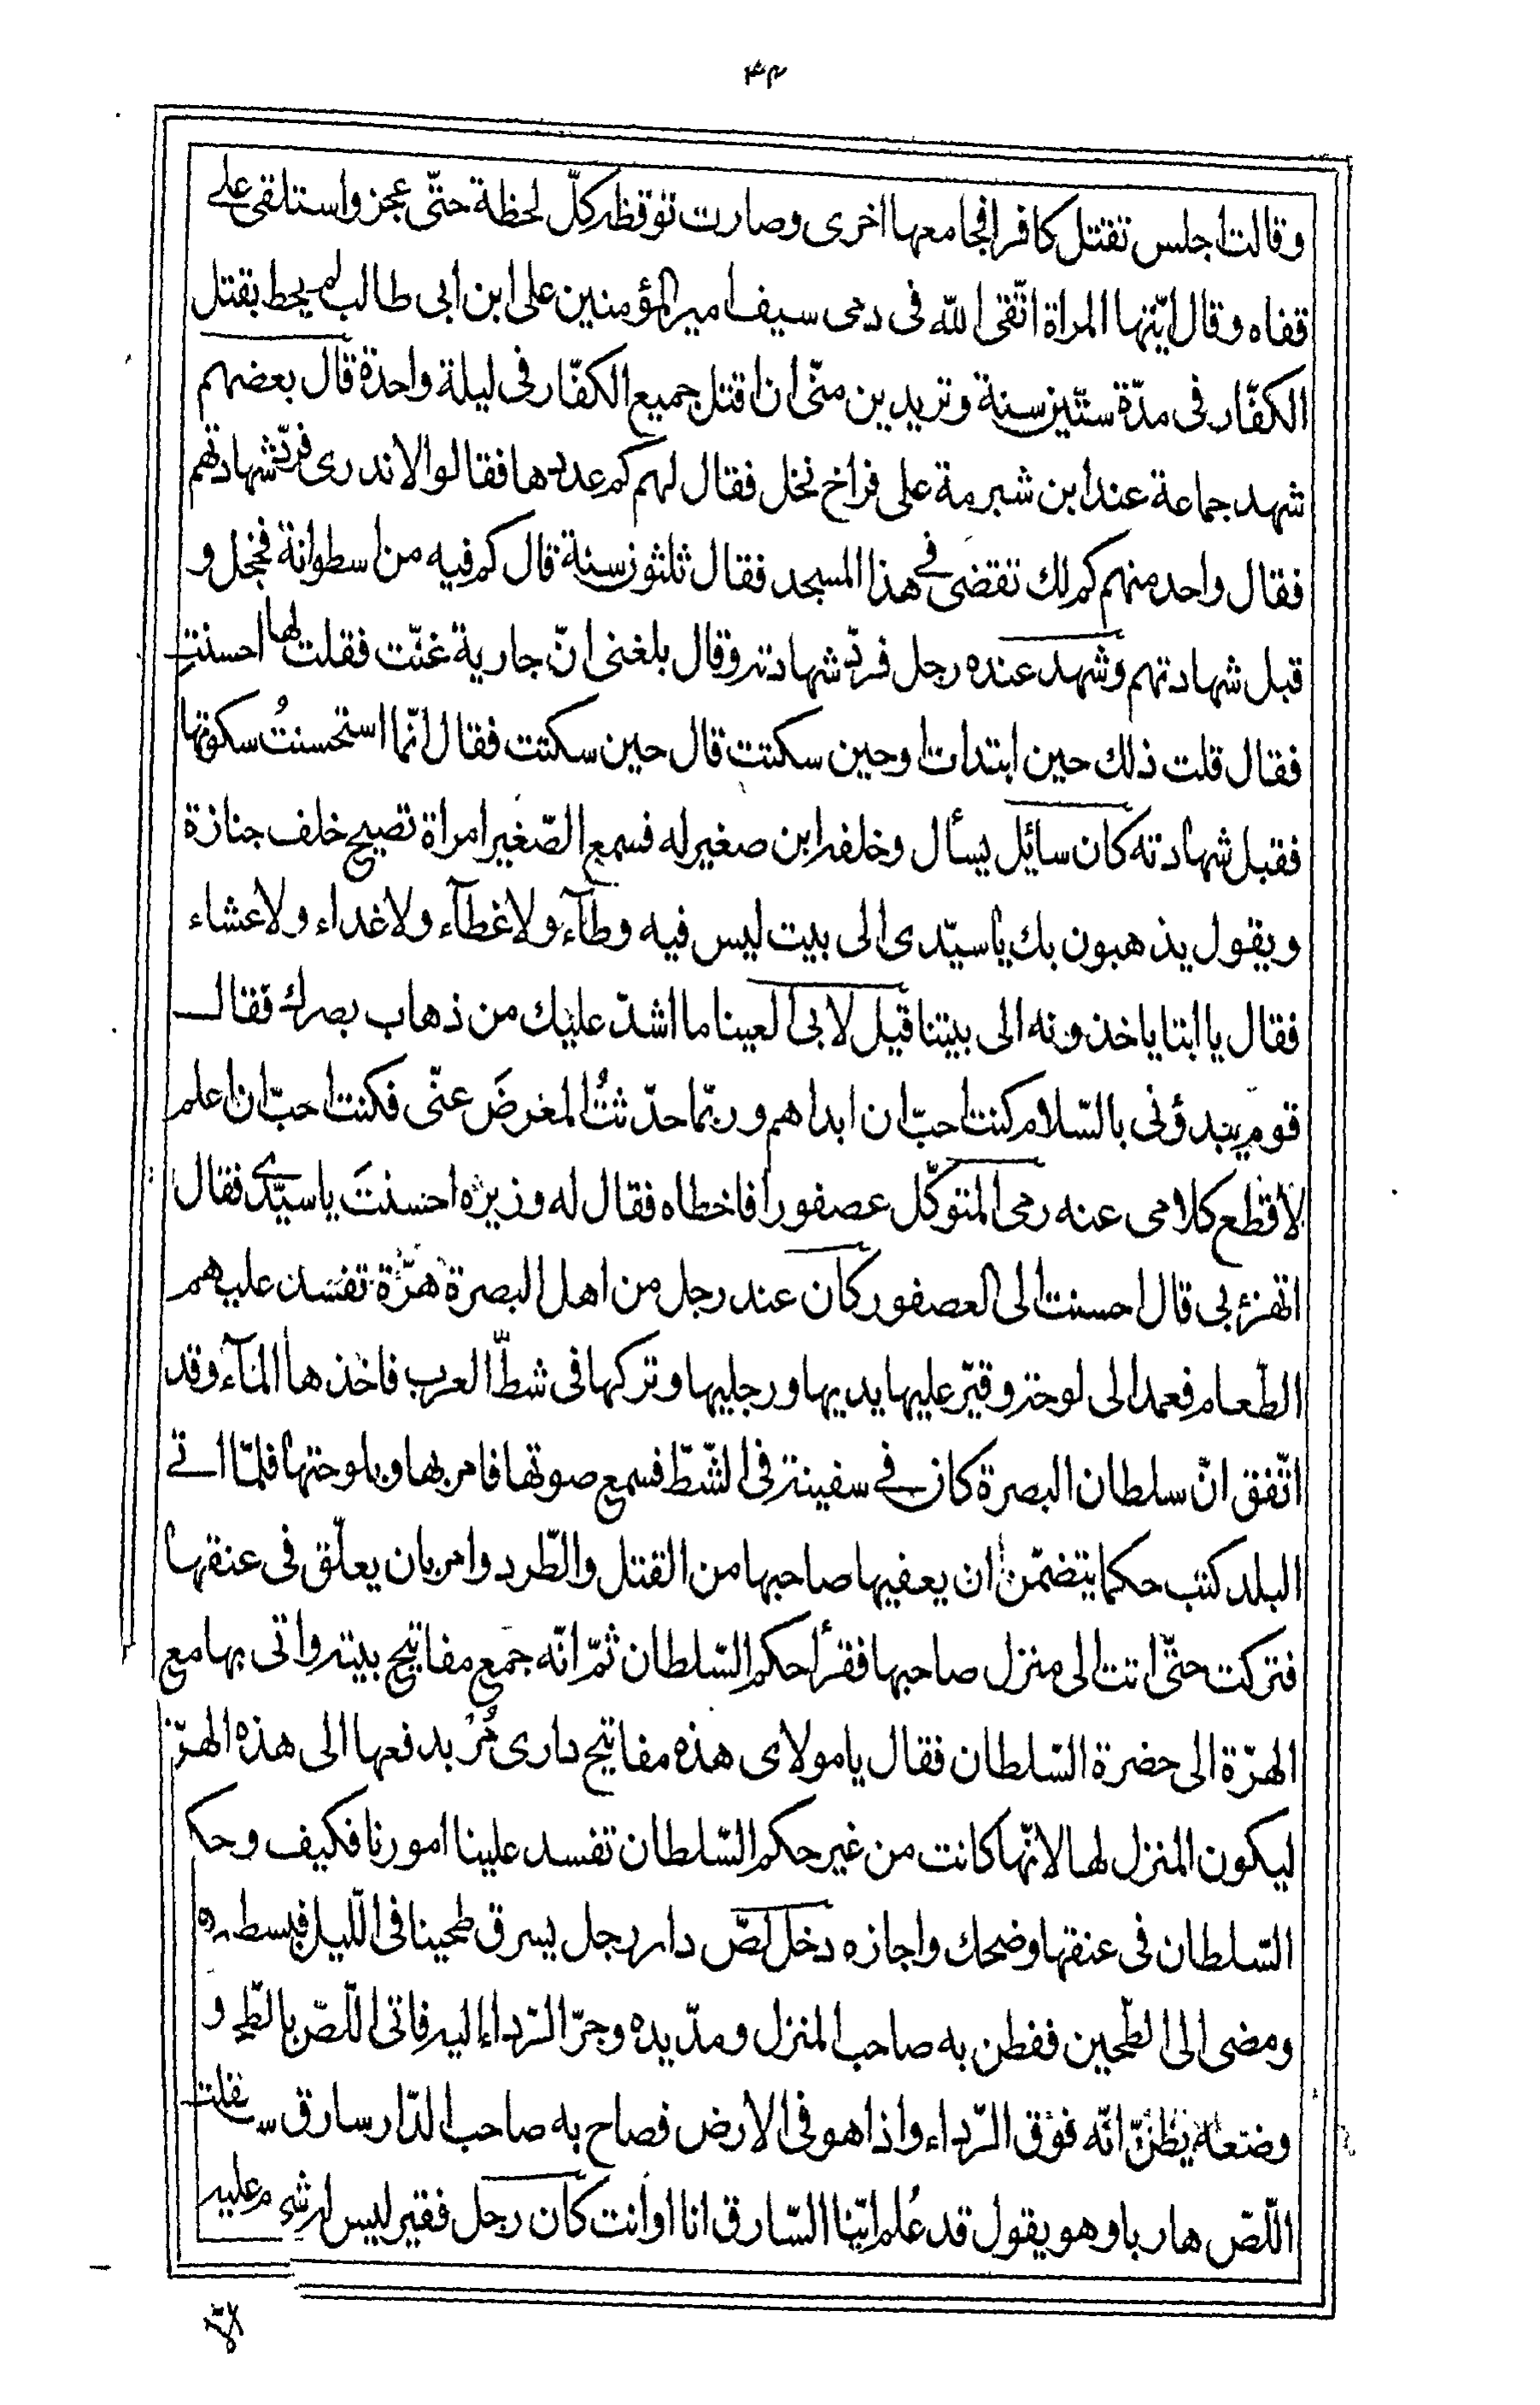 ٣٤
وقالت اجلس تقتل كافرا فجامعها اخرى وصارت توقظه كلّ لحظة حتّى عجز واستلقى على
قفاه وقال ايّتها المراة اتّقى الله فى دمى سيف امير المؤمنين على ابن ابى طالب لم يحط بقتل
الكفّار فى مدّة ستّين سنة وتريدين منّى ان اقتل جميع الكفّار فى ليلة واحدة قال بعضهم
شهد جماعة عند ابن شبرمة على فراخ نخل فقال لهم كم عددها فقالوا لا ندرى فردّ شهادتهم
فقال واحد منهم كم لك تقضى فى هذا المسجد فقال ثلثون سنة قال كم فيه من اسطوانة فخجل و
قبل شهادتهم وشهد عنده رجل فردّ شهادته وقال بلغنى انّ جارية غنّت فقلت لها احسنتِ
فقال قلت ذلك حين ابتدات او حين سكتت قال حين سكتت فقال انّما استحسنتُ سكوتها
فقبل شهادته كان سائل يسأل وخلفه ابن صغير له فسمع الصّغير امراة تصيح خلف جنازة
ويقول يذهبون بك يا سيّدى الى بيت ليس فيه وطآء ولا غطآء ولا غداء ولا عشاء
فقال يا ابتا ياخذونه الى بيتنا قيل لابى العينا ما اشدّ عليك من ذهاب بصرك فقال
قوم يبدؤنى بالسّلام كنت احبّ ان ابداهم وربّما حدّثتُ المعرضَ عنّى فكنت احبّ ان اعلم
لأقطع كلامى عنه رمى المتوكّل عصفورا فاخطاه فقال له وزيره احسنتَ يا سيّدى فقال
اتهزئ بى قال احسنت الى العصفور كان عند رجل من اهل البصرة هرّة تفسد عليهم
الطّعام فعمد الى لوحة وقيّر عليها يديها ورجليها وتركها فى شطّ العرب فاخذها المآء وقد
اتّفق انّ سلطان البصرة كان فى سفينة فى الشّطّ فسمع صوتها فامر بها وبلوحتها فلمّا اتى
البلد كتب حكما يتضمّن ان يعفيها صاحبها من القتل والطّرد وامر بان يعلّق فى عنقها
فتركت حتّى اتت الى منزل صاحبها فقرأ حكم السّلطان ثمّ انّه جمع مفاتيح بيته واتى بها مع
الهرّة الى حضرة السّلطان فقال يا مولاى هذه مفاتيح دارى مُرْ بدفعها الى هذه الهرّة
ليكون المنزل لها لانّها كانت من غير حكم السّلطان تفسد علينا امورنا فكيف وحكم
السّلطان فى عنقها وضحك واجازه دخل لصّ دار رجل يسرق طحينا فى اللّيل فبسط رداه
ومضى الى الطّحين ففطن به صاحب المنزل ومدّ يده وجرّ الرّداء اليه فاتى اللّصّ بالطّحين و
وضعه يظنّ انّه فوق الرّداء واذا هو فى الارض فصاح به صاحب الدّار سارق
اللّصّ هاربا وهو يقول قد عُلم ايّنا السّارق انا او انت كان رجل فقير ليس له شىء